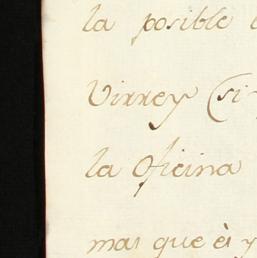 la posible
Virrey (si
la Oficina
mas que èl y